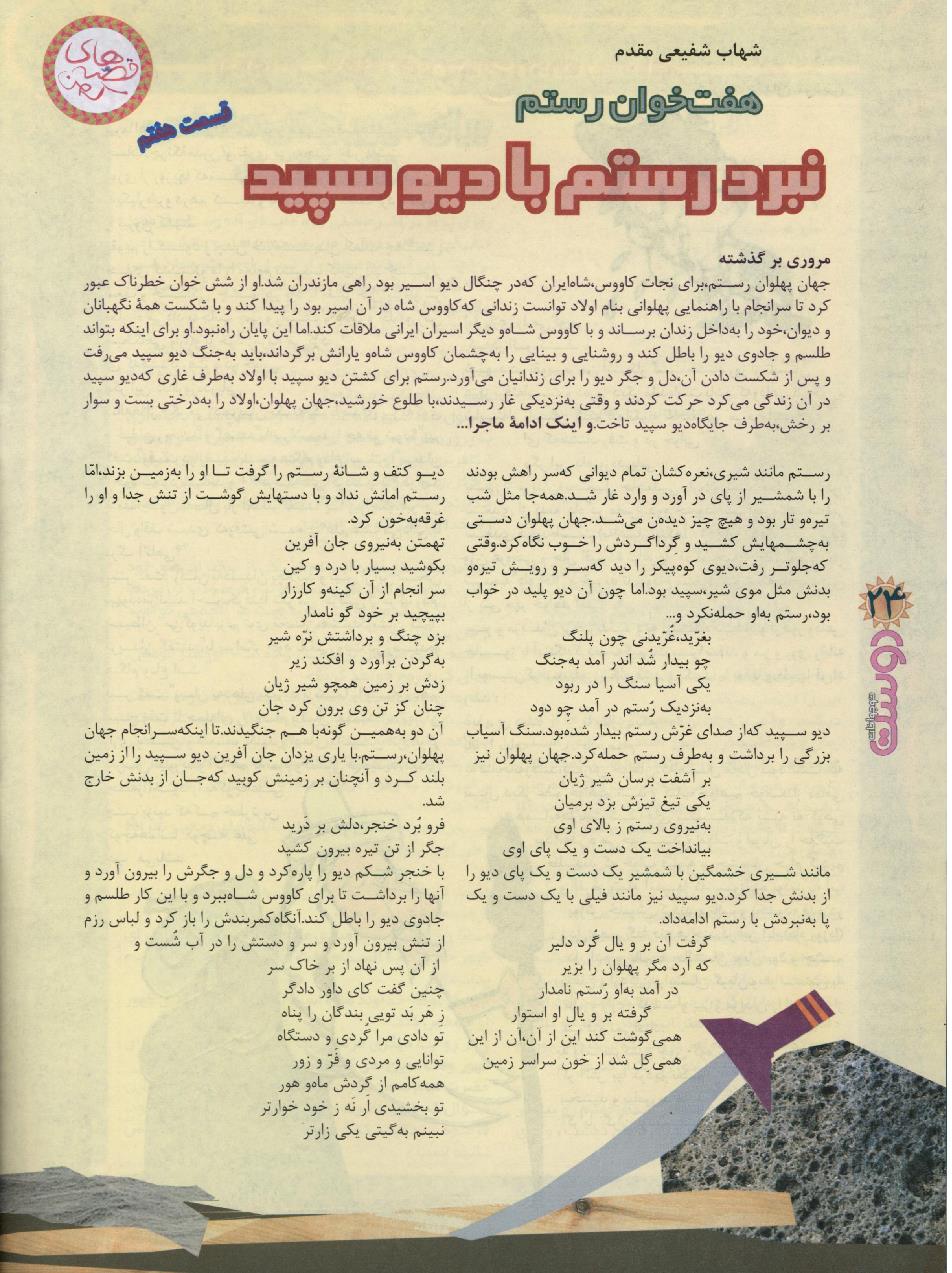 قصه‌های کهن
شهاب شفیعی مقدم
هفت‌خوان رستم
قسمت هفتم
نبرد رستم با دیو سپید
مروری بر گذشته
جهان پهلوان رستم،برای نجات کاووس،شاه‌ایران که‌در چنگال دیو اسیر بود راهی مازندران شد.او از شش خوان خطرناک عبور
کرد تا سرانجام با راهنمایی پهلوانی بنام اولاد توانست زندانی که‌کاووس شاه در آن اسیر بود را پیدا کند و با شکست همهٔ نگهبانان
و دیوان،خود را به‌داخل زندان برساند و با کاووس شاه‌و دیگر اسیران ایرانی ملاقات کند.اما این پایان راه‌نبود.او برای اینکه بتواند
طلسم و جادوی دیو را باطل کند و روشنایی و بینایی را به‌چشمان کاووس شاه‌و یارانش برگرداند،باید به‌جنگ دیو سپید می‌رفت
و پس از شکست دادن آن،دل و جگر دیو را برای زندانیان می‌آورد.رستم برای کشتن دیو سپید با اولاد به‌طرف غاری که‌دیو سپید
در آن زندگی می‌کرد حرکت کردند و وقتی به‌نزدیکی غار رسیدند،با طلوع خورشید،جهان پهلوان،اولاد را به‌درختی بست و سوار
بر رخش،به‌طرف جایگاه‌دیو سپید تاخت.و اینک ادامهٔ ماجرا...
رستم مانند شیری،نعره‌کشان تمام دیوانی که‌سر راهش بودند
را با شمشیر از پای در آورد و وارد غار شد.همه‌جا مثل شب
تیره‌و تار بود و هیچ چیز دیده‌ن می‌شد.جهان پهلوان دستی
به‌چشمهایش کشید و گِرداگردش را خوب نگاه‌کرد.وقتی
که‌جلوتر رفت،دیوی کوه‌پیکر را دید که‌سر و رویش تیره‌و
بدنش مثل موی شیر،سپید بود.اما چون آن دیو پلید در خواب
بود،رستم به‌او حمله‌نکرد و...
بغرّید،غُرّیدنی چون پلنگ
چو بیدار شُد اندر آمد به‌جنگ
یکی آسیا سنگ را در ربود
به‌نزدیک رُستم در آمد چو دود
دیو سپید که‌از صدای غرّش رستم بیدار شده‌بود.سنگ آسیاب
بزرگی را برداشت و به‌طرف رستم حمله‌کرد.جهان پهلوان نیز
بر آشفت برسان شیر ژیان
یکی تیغ تیزش بزد برمیان
به‌نیروی رستم ز بالای اوی
بیانداخت یک دست و یک پای اوی
مانند شیری خشمگین با شمشیر یک دست و یک پای دیو را
از بدنش جدا کرد.دیو سپید نیز مانند فیلی با یک دست و یک
پا به‌نبردش با رستم ادامه‌داد.
گرفت آن بر و یال گُرد دلیر
که آرد مگر پهلوان را بزیر
در آمد به‌او رُستم نامدار
گرفته بر و یالِ او استوار
همی‌گوشت کند این از آن،آن از این
همی‌گِل شد از خون سراسر زمین
دیو کتف و شانهٔ رستم را گرفت تا او را به‌زمین بزند،امّا
رستم امانش نداد و با دستهایش گوشت از تنش جدا و او را
غرقه‌به‌خون کرد.
تهمتن به‌نیروی جان آفرین
بکوشید بسیار با درد و کین
سر انجام از آن کینه‌و کارزار
بپیچید بر خود گو نامدار
بزد چنگ و برداشتش نرّه شیر
به‌گردن برآورد و افکند زیر
زدش بر زمین همچو شیر ژیان
چنان کز تن وی برون کرد جان
آن دو به‌همین گونه‌با هم جنگیدند.تا اینکه‌سرانجام جهان
پهلوان،رستم.با یاری یزدان جان آفرین دیو سپید را از زمین
بلند کرد و آنچنان بر زمینش کوبید که‌جان از بدنش خارج
شد.
فرو بُرد خنجر،دلش بر دَرید
جگر از تن تیره بیرون کشید
با خنجر شکم دیو را پاره‌کرد و دل و جگرش را بیرون آورد و
آنها را برداشت تا برای کاووس شاه‌ببرد و با این کار طلسم و
جادوی دیو را باطل کند.آنگاه‌کمربندش را باز کرد و لباس رزم
از تنش بیرون آورد و سر و دستش را در آب شُست و
از آن پس نهاد از بر خاک سر
چنین گفت کای داور دادگر
زِ هَر بَد تویی بندگان را پناه
تو دادی مرا گُردی و دستگاه
توانایی و مردی و فَرّ و زور
همه‌کامم از گردش ماه‌و هور
تو بخشیدی اَر نَه ز خود خوارتر
نبینم به‌گیتی یکی زارتر
۲۴
دوست
نوجوانان